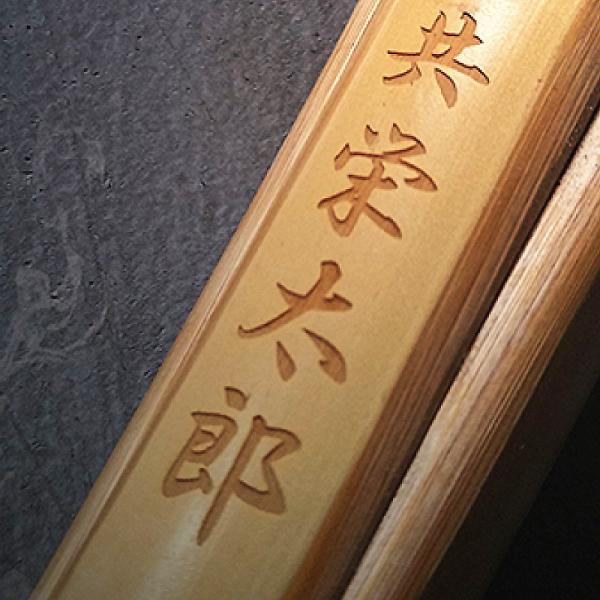 共栄太郎